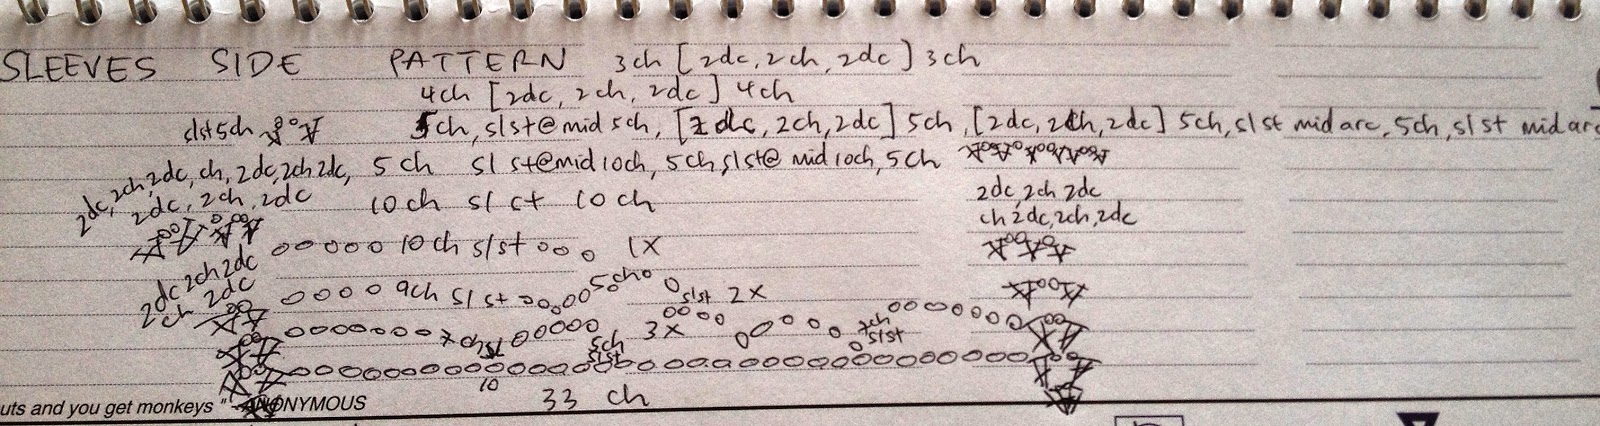 SLEEVES SIDE PATTERN 3ch [2dc, 2ch, 2dc] 3ch
4ch [2dc, 2ch, 2dc] 4ch
slst 5ch 5ch, slst@mid 5ch, [2dc, 2ch, 2dc] 5ch, [2dc, 2ch, 2dc] 5ch, slst mid arc, 5ch, slst mid arc
2dc, 2ch, 2dc, ch, 2dc, 2ch 2dc, 5 ch slst@mid 10ch, 5ch, slst@ mid 10ch, 5ch
2dc, 2ch, 2dc 10 ch sl ct 10 ch 2dc, 2ch 2dc
ch 2dc, 2ch, 2dc
10 ch slst 1X
2dc 2ch 2dc
ch 2dc 9ch slst 5ch slst 2X
7ch sl 5ch slst 3X 7ch slst
10
33 ch
uts and you get monkeys " - ANONYMOUS